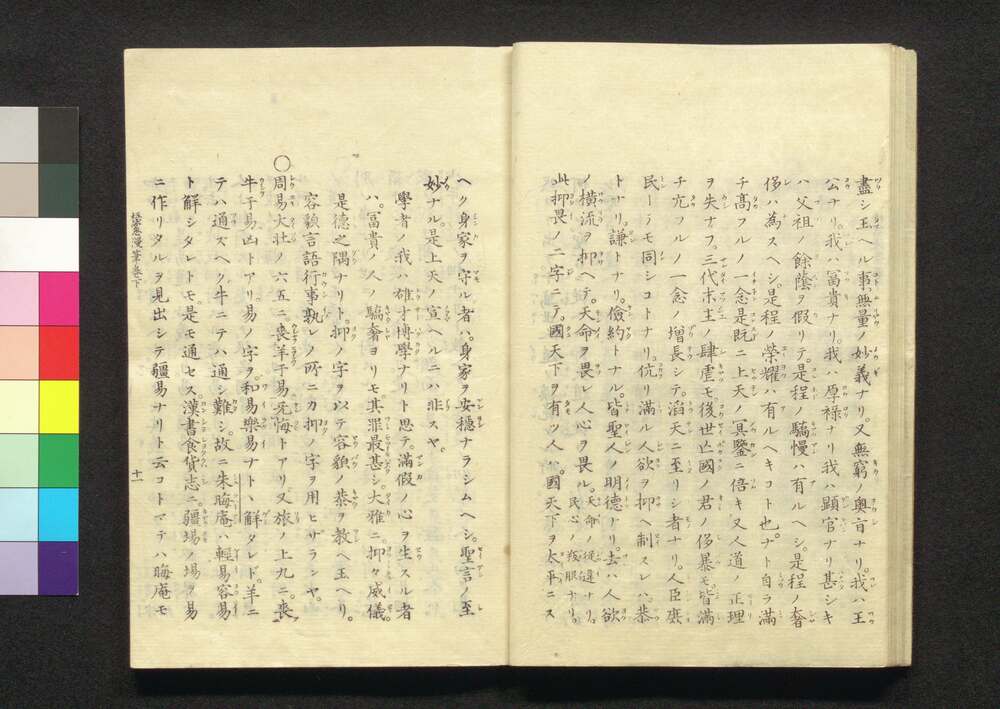 盡シ玉ヘル事、無量ノ妙義ナリ。又無窮ノ奥旨ナリ。我ハ王
公ナリ。我ハ冨貴ナリ。我ハ厚禄ナリ我ハ顕官ナリ甚シキ
ハ父祖ノ餘蔭ヲ假リテ。是程ノ驕慢ハ有ルヘシ。是程ノ奢
侈ハ為スヘシ。是程ノ榮耀ハ有ルヘキコト也。ナト自ラ滿
チ髙フルノ一念是既ニ上天ノ具鑒ニ倍キ又人道ノ正理
ヲ失ナフ。三代末主ノ肆虐モ。後世亡國ノ君ノ侈暴モ。皆滿
チ亢フルノ一念ノ増長シテ。滔天ニ至リシ者ナリ。人臣庶
民ーラモ同シコトナリ。伉リ滿ル人欲ヲ抑ヘ制スレハ。恭
トナリ。謙トナリ。儉約トナル。皆聖人ノ明德ナリ。去ハ人欲
ノ横流ヲ抑ヘテ。天命ヲ畏レ人心ヲ畏ル。天命ノ従違ナリ。民心ノ叛服ナリ。
此抑畏ノ二字ニテ。國天下ヲ有ツ人ハ。國天下ヲ太平ニス
ヘク身家ヲ守ル者ハ。身家ヲ安穏ナラシムヘシ。聖言ノ至
妙ナル。是上天ノ宣ヘルニハ非スヤ。
學者ノ我ハ雄才博學ナリト思テ。滿假ノ心ヲ生スル者
ハ。冨貴ノ人ノ驕奢ヨリモ。其罪最甚シ。大雅ニ。抑々威儀。
是德之隅ナリト。抑ノ字ヲ以テ容貌ノ恭ヲ教ヘ玉ヘリ。
容貌言語行事孰レノ所ニカ抑ノ字ヲ用ヒザランヤ。
○周易大壮ノ六五ニ。喪羊于易无悔トアリ又旅ノ上九ニ。喪
牛于易。凶トアリ。易ノ字ヲ。和易樂易ナト丶解タレド。羊ニ
テハ通スヘク牛ニテハ通シ難シ。故ニ朱晦庵ハ輕易容易
ト解シタレトモ。是モ通セス漢書食貨志ニ。疆埸ノ埸ヲ易
ニ作リタルヲ見出シテ疆易ナリト云コトマテハ晦庵モ
漫筆巻下
十一